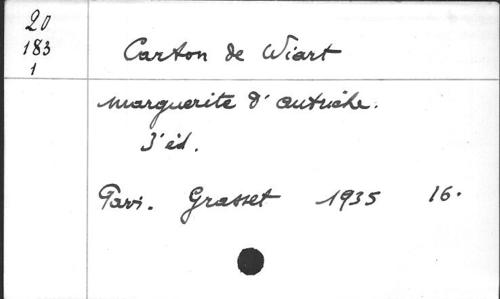 20
183
1
Carton de Wiart
Marguerite d'autriche.
3' éd.
Pari. Grasset 1935 16.